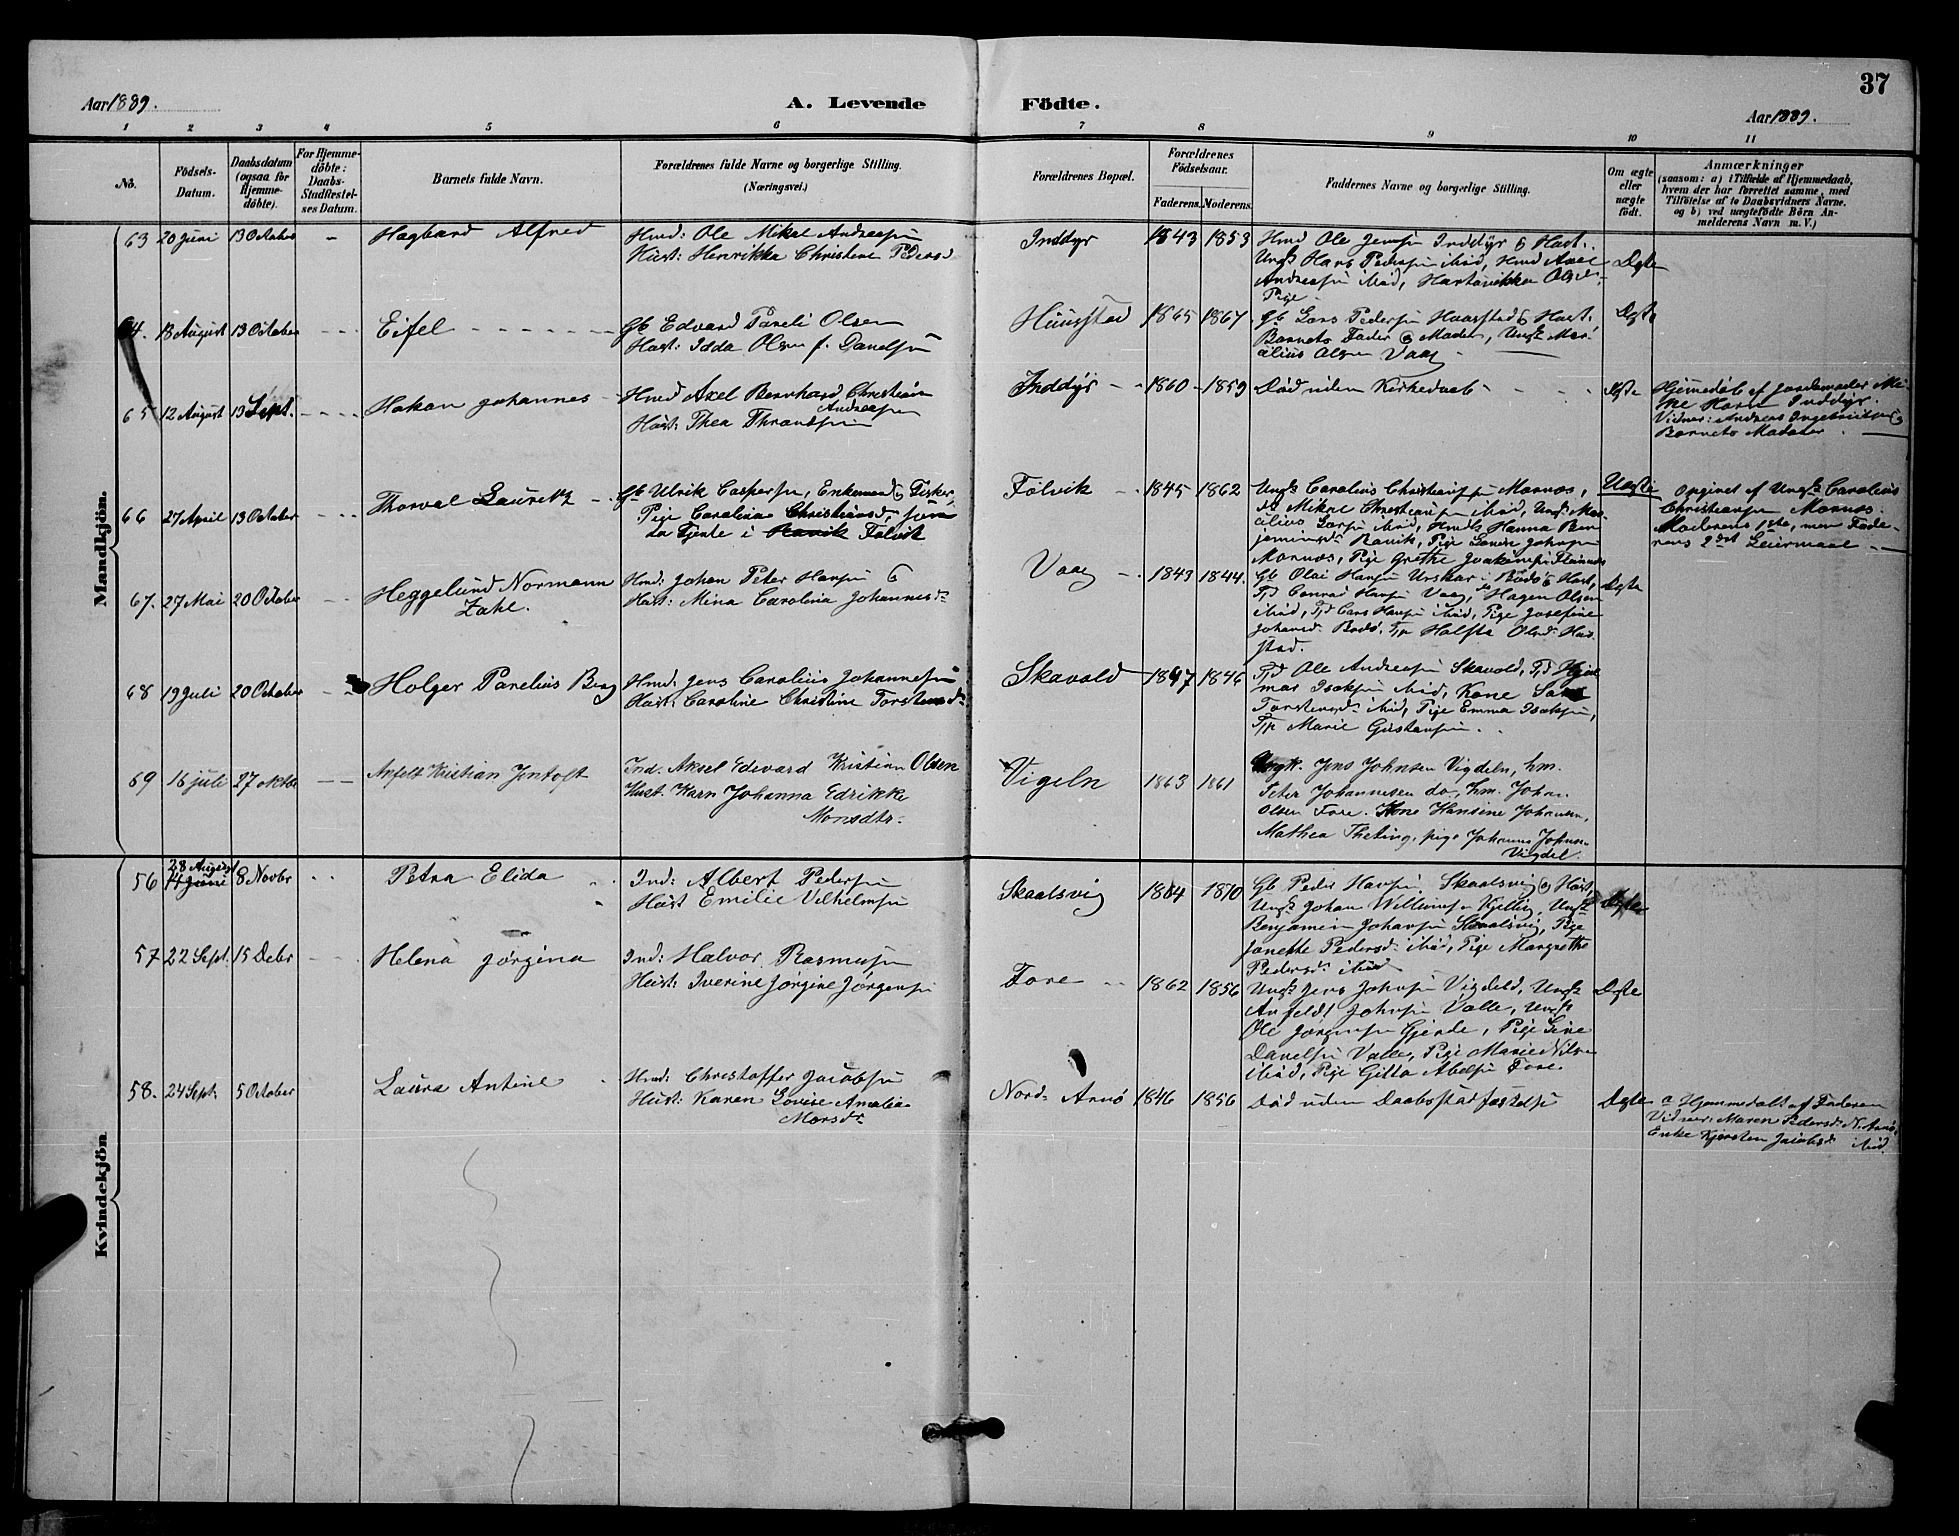 37
Aar 1889.
A. Levende Födte.
Aar 1889.
1 2 3 4 5 6 7 8 9 10 11
No.
Födsels-Datum.
Daabsdatum (ogsaa for Hjemme-döbte).
For Hjemme-döbte: Daabs-Stadfæstel-ses Datum.
Barnets fulde Navn.
Forældrenes fulde Navne og borgerlige Stilling.
(Næringsvei.)
Forældrenes Bopæl.
Forældrenes Födselsaar.
Faderens. Moderens.
Faddernes Navne og borgerlige Stilling.
Om ægte eller uægte födt.
Anmærkninger
(saasom: a) i Tilfælde af Hjemmedaab,
hvem der har forrettet samme, med
Tilföielse af to Daabsvidners Navne.
og b) ved uægtefödte Börn An-
melderens Navn m. V.)
Mandkjön.
63 20 Juni 13 October - Hagbard Alfred
Hmd: Ole Mikal Andreasen
Hust: Henrikka Christine Pedersd
Inddyr 1843 1853
Hmd Ole Jensen Inddyr & Hust.
Ungk Hans Pedersen ibid, Hmd Axel
Andreasen ibid,
Pige
Ægte
64. 18 August 13 October Eifel
Gb Edvard Pareli Olsen
Hust: Idda Olsen f. Danelsen
Huusstad 1865 1867
Gb Lars Pedersen Haarstad & Hust.
Barnets Fader & Moder, Ungk Mar-
cilius Olsen Vaag
Ægte
65 12 August 13 Sept. Hakon Johannes
Hmd Axel Bernhard Christian
Andreasen
Hust: Thea Thrandsen
Inddyr 1860 1859
Død uden Kirkedaab
Ægte
Hjemmedöb af Jordemoder
Horn Inddyr.
Vidner: Andreas Ingebrittsen &
Barnets Moder
66 27 April 13 October Thorval Lauritz
Gb Ulrik Caspersen, Enkemand & Fisker
Pige Carolina Christiansd,
da Tjente i Ravik Fölvik
Fölvik 1845 1862
Ungk Carolius Christiansen Mornæs,
Mikal Christiansen ibid, Ungk Mar-
cilius Larsen ibid, Hmds Hanna Ben-
jaminsd Ravik, Pige Johnsen
Mornæs, Pige Grethe Joakimsen
Uægte
Opgivet af Ungk Carolius
Christiansen Mornæs.
Moderens 1ste, men Fade-
rens 2det Leiermaal
67. 27 Mai 20 October Heggelund Normann
Zahl.
Hmd: Johan Peter Hansen &
Hust: Mina Carolina Johannesd
Vaag 1843 1844.
Gb Olai Hansen Urskar i Bodö & Hust,
Conrad Hansen Vaag, Hagen Olsen
ibid, Lars Hansen ibid, Pige Josefine
Johansd Bodö, Olsd Hus-
stad.
Ægte
68 19 Juli 20 October Holger Parelius Berg
Hmd: Jens Carolius Johannesen
Hust: Caroline Christine Torstensd
Skavold 1847 1846
Ole Andreasen Skavold, Hjal-
mar Isaksen ibid, Kone
Torstensd ibid, Pige Emma Isaksen,
Marie Gustavsen.
69 16 juli 27 oktbr Anfelt Kristian Jentoft
Ind. Aksel Edevard Kristian Olsen
Hust. Karn Johanna Edrikke
Monsdtr.
Vigeln 1863 1861
Ungk. Jens Johnsen Vigdeln, hm.
Peter Johannesen do, hm. John
Olsen Fore. Kone Hansine Johansen,
Mathea Theting, pige Johnsen
Vigdel.
Kvindekjön.
56 28 August 14 Juni 8 Novbr Petra Elida
Ind: Albert Pedersen
Hust Emilie Vilhelmsen
Skaalsvig 1864 1870
Gb Peder Hansen Skaalsvig & Hust,
Ungk Johan Willumsen Kjelling, Ungk
Benjamin Johansen Skaalsvig, Pige
Janette Pedersd ibid, Pige Margrethe
Pedersd ibid
Ægte
57 22 Sept. 15 Debr Helena Jörgina
Ind: Halvor Rasmusen
Hust: Iverine Jörgine Jörgensen
Fore 1862 1856
Ungk Jens Johnsen Vigdeld, Ungk
Anfeldt Johnsen Valle, Ungk
Ole Jörgensen Gjerde, Pige Line
Danelsen Valle, Pige Marie Nils
ibid, Pige Gitta Abelsen Fore.
Ægte
58. 24 Sept. 5 October Laura Antine
Hmd: Christoffer Jacobsen
Hust: Karen Lovise Amalia
Morsdtr
Nord Arnö 1846 1856
Död uden Daabsstadfæstelse
Ægte
a Hjemmedøbt af Faderen
Vidner: Maren Pedersd N. Arnö,
Enke Kjersten Jacobsd ibid